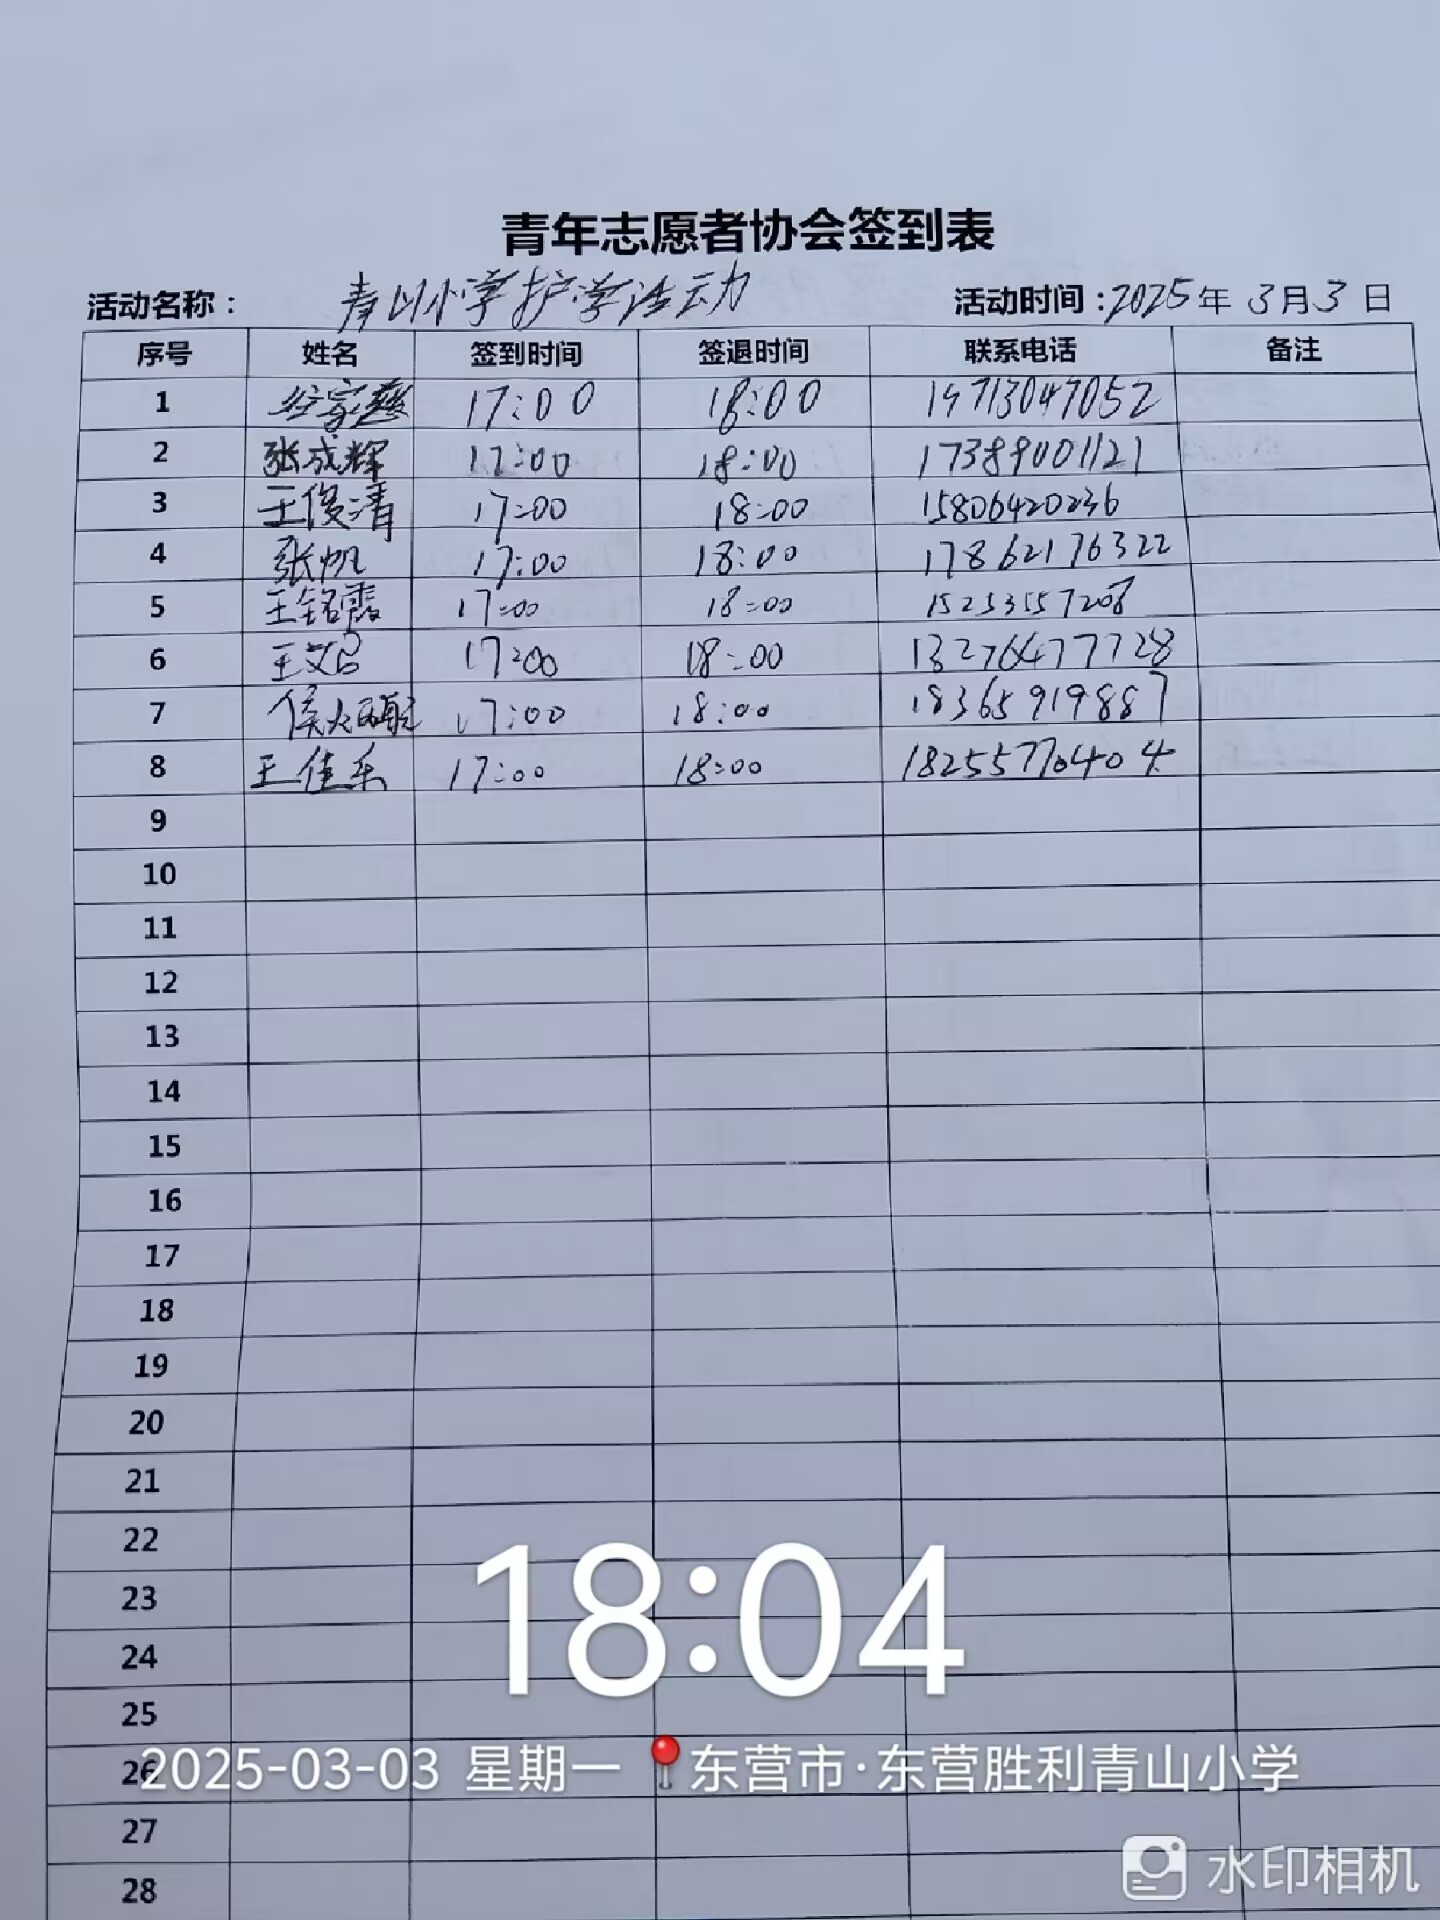 青年志愿者协会签到表
活动名称： 青山小学护学活动 活动时间：2025年 3月3日
序号 姓名 签到时间 签退时间 联系电话 备注
1 17:00 18:00
2 张成辉 17:00 18:00 17389001121
3 王俊清 17:00 18:00 15806420236
4 张帆 17:00 18:00 17862176322
5 王铭霞 17:00 18:00 15253557208
6 17:00 18:00 13276477728
7 17:00 18:00 18365919887
8 王佳乐 17:00 18:00 18255770404
9
10
11
12
13
14
15
16
17
18
19
20
21
22
23
24
25
26
27
28
18:04
2025-03-03 星期一 东营市·东营胜利青山小学
水印相机